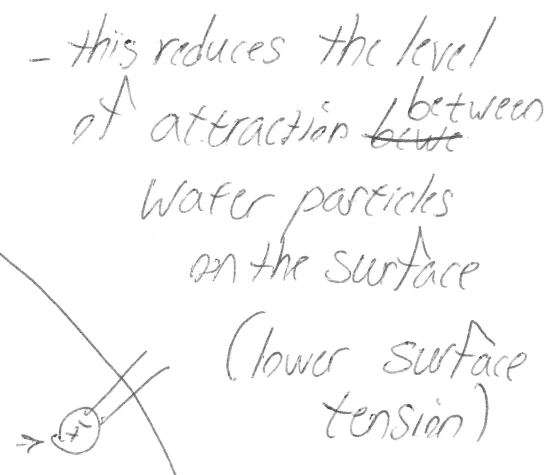 - this reduces the level
of attraction between
water particles
on the surface
(lower surface
tension)
+